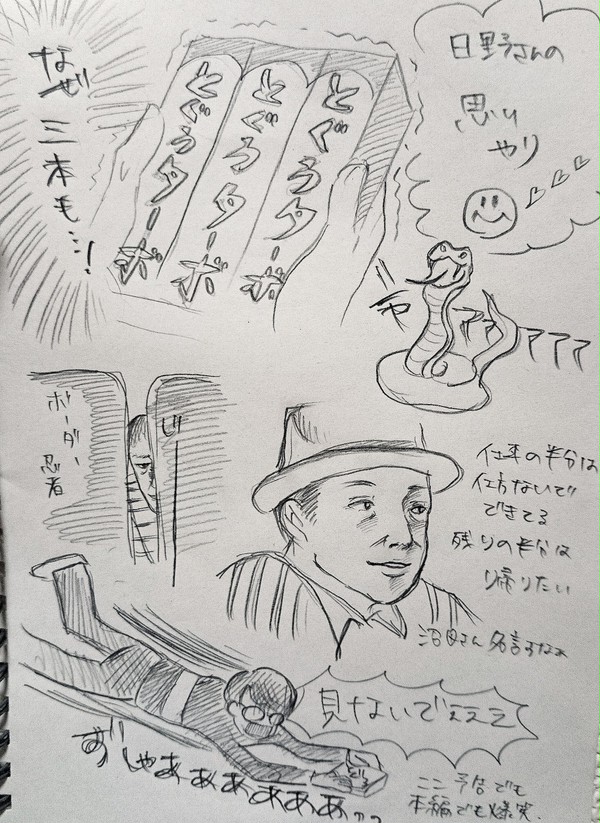 なぜ三本も…!
とぐろターボ
とぐろターボ
とぐろターボ
日野さんの
思い
やり
シャアアアアアア
ボーダー
忍者
じ
仕事の半分は
仕方ないで
できてる
残りの半分は
帰りたい
沼田さん名言だなぁ
見ないでぇぇえ
ずしゃあぁぁぁぁぁぁ
ここ予告でも
本編でも爆笑